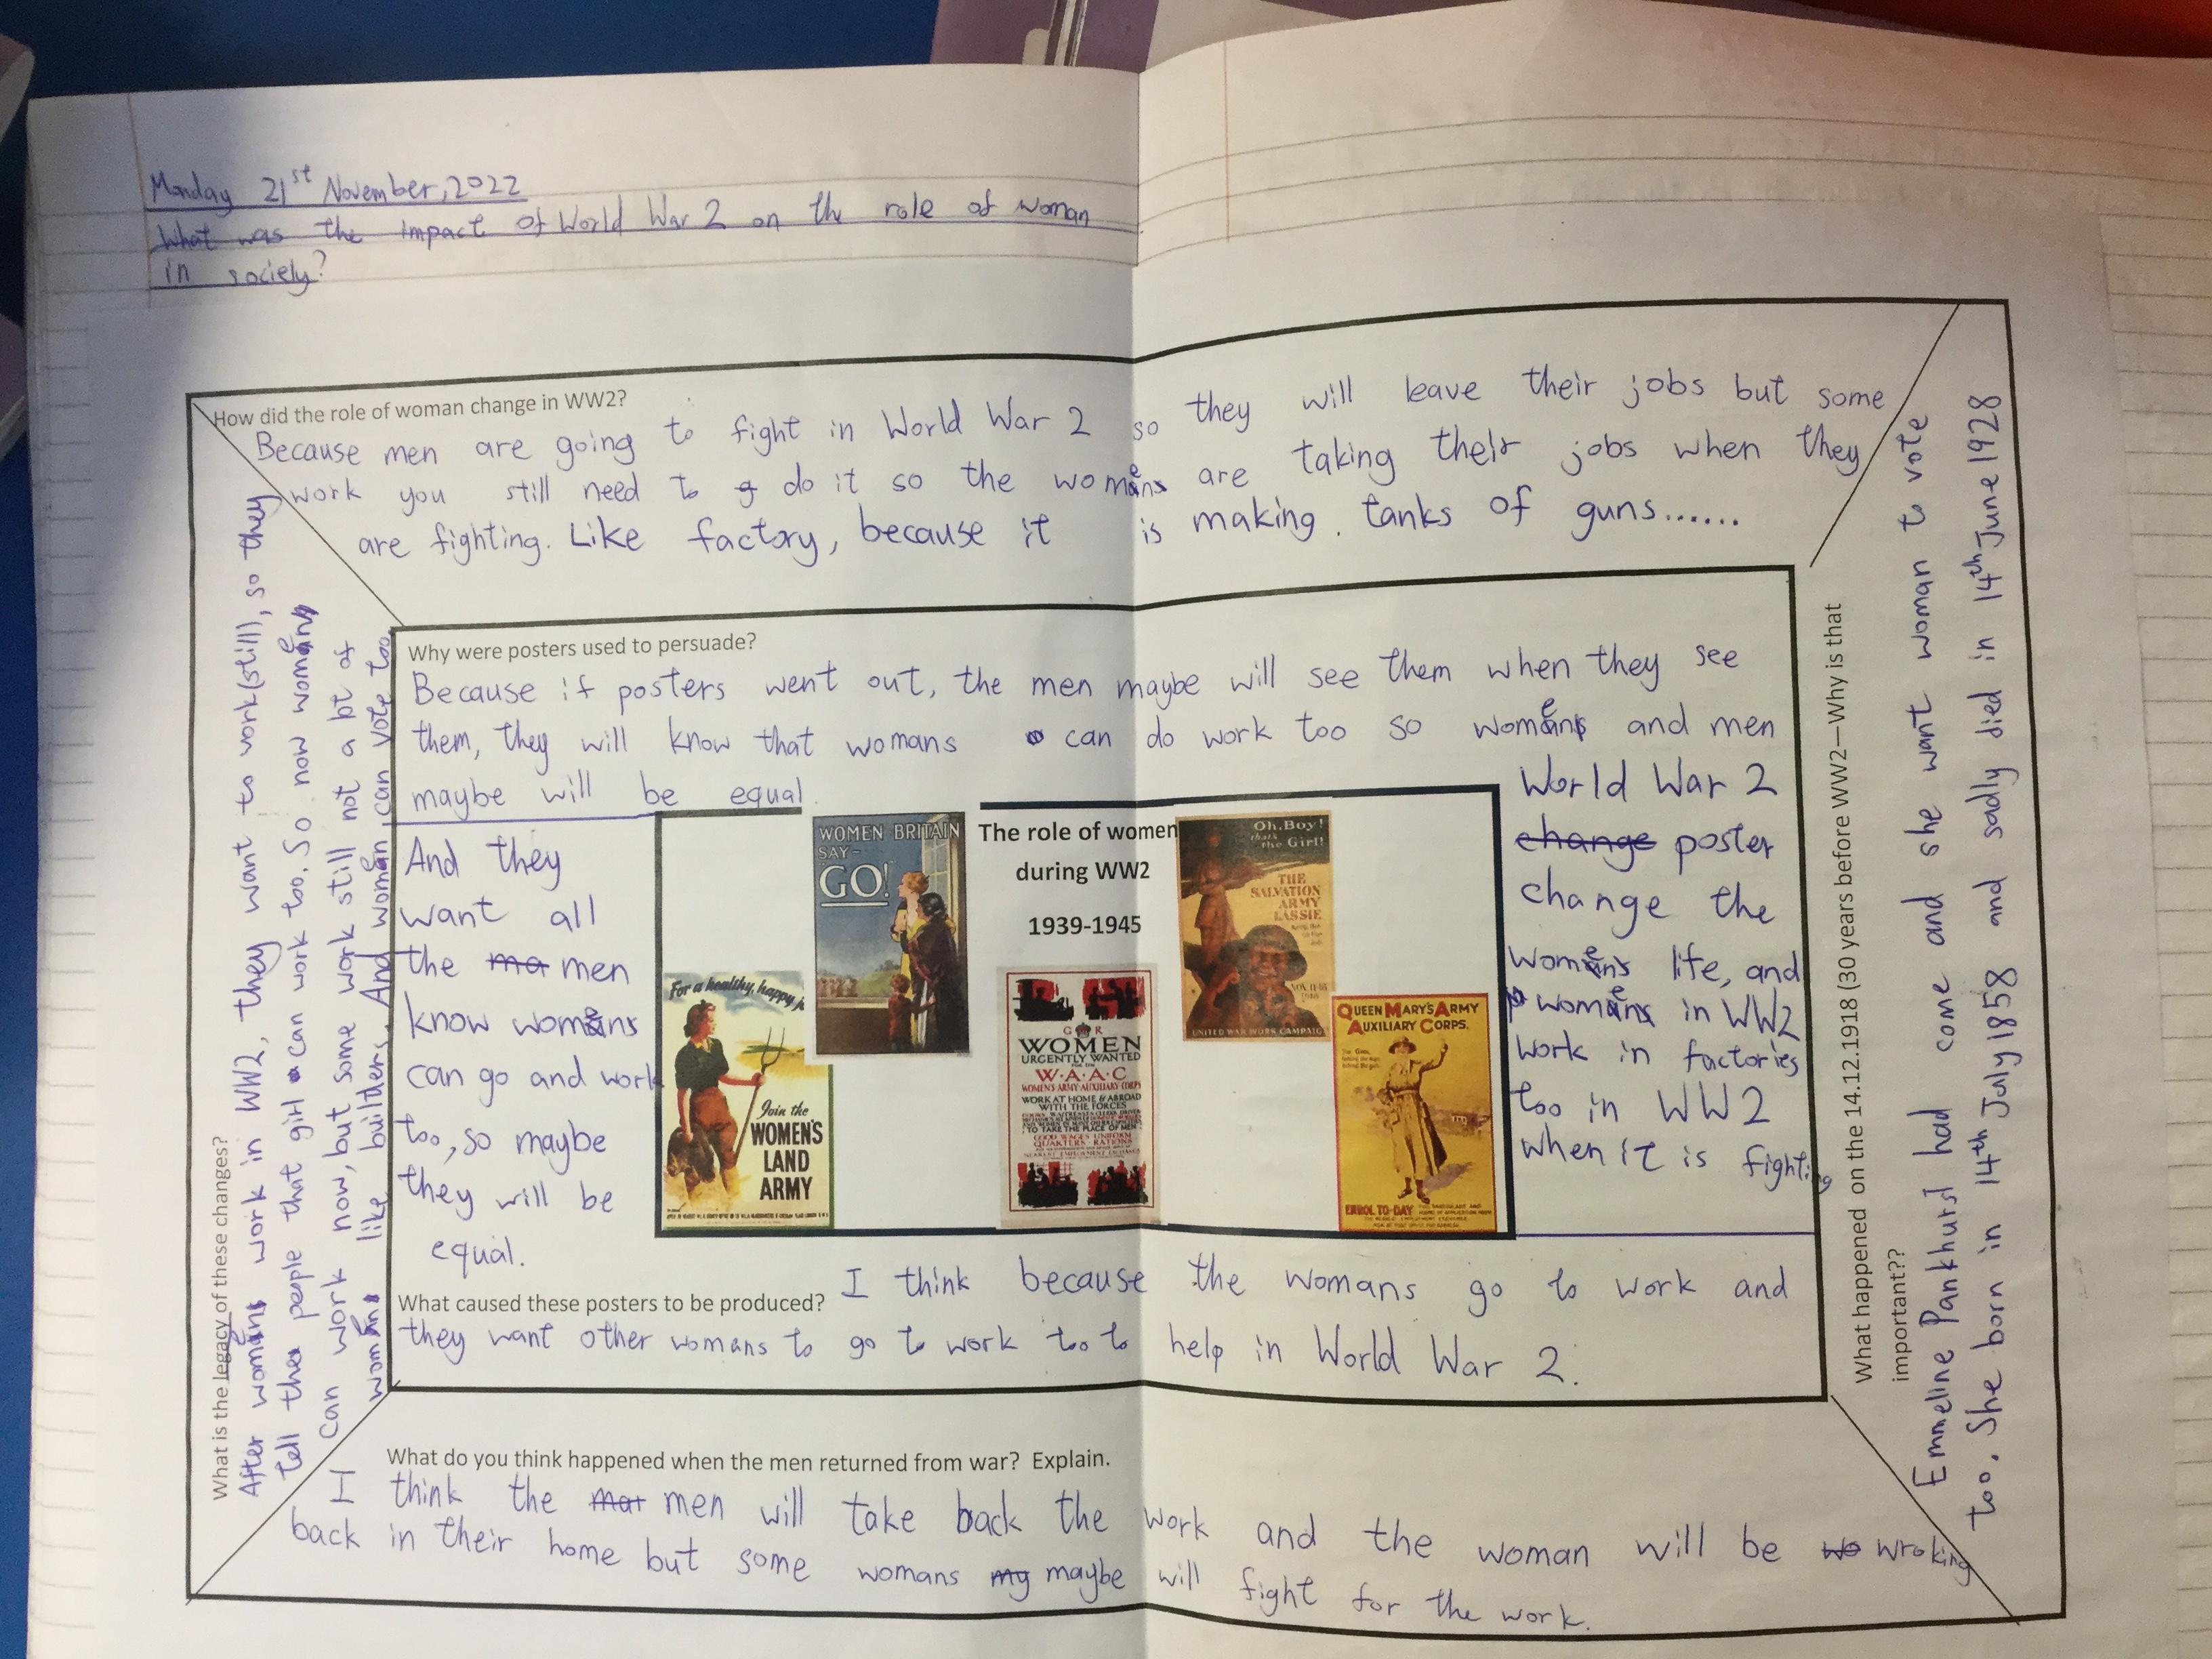 Monday 21st November, 2022
What was the impact of World War 2 on the role of woman
in society?
How did the role of woman change in WW2?
Because men are going to fight in World War 2 so they will leave their jobs but some
work you still need to do it so the womens are taking their jobs when they
are fighting. Like factory, because it is making. tanks of guns......
Why were posters used to persuade?
Because if posters went out, the men maybe will see them when they see
them, they will know that womans can do work too so women and men
maybe will be equal.
And they
want all
the ma men
know womens
can go and work
too, so maybe
they will be
equal.
WOMEN BRITAIN
SAY-
GO!
The role of women
during WW2
1939-1945
Oh, Boy!
that's
the Girl!
THE
SALVATION
ARMY
LASSIE
UNITED WAR WORK CAMPAIGN
For a healthy, happy j
Join the
WOMEN'S
LAND
ARMY
G R
WOMEN
URGENTLY WANTED
W·A·A·C
WOMEN'S ARMY AUXILIARY CORPS
WORK AT HOME & ABROAD
WITH THE FORCES
TO TAKE THE PLACE OF MEN
GOOD WAGES · UNIFORM
QUARTERS · RATIONS
QUEEN MARY'S ARMY
AUXILIARY CORPS.
ENROL TO-DAY
World War 2
change poster
change the
womens life, and
womens in WW2
work in factories
too in WW2
when it is fighting
What caused these posters to be produced?
I think because the womans go to work and
they want other womans to go to work too to help in World War 2.
What do you think happened when the men returned from war? Explain.
I think the mat men will take back the work and the woman will be wo wroking
back in their home but some womans my maybe will fight for the work.
What is the legacy of these changes?
After womens work in WW2, they want to work(still), so they
tell the people that girl can work too. So now womens
can work now, but some work still not a bt of
womens like builders. And women can vote too.
What happened on the 14.12.1918 (30 years before WW2—Why is that
important??
Emmeline Pankhurst had come and she want woman to vote
too. She born in 14th July 1858 and sadly died in 14th June 1928